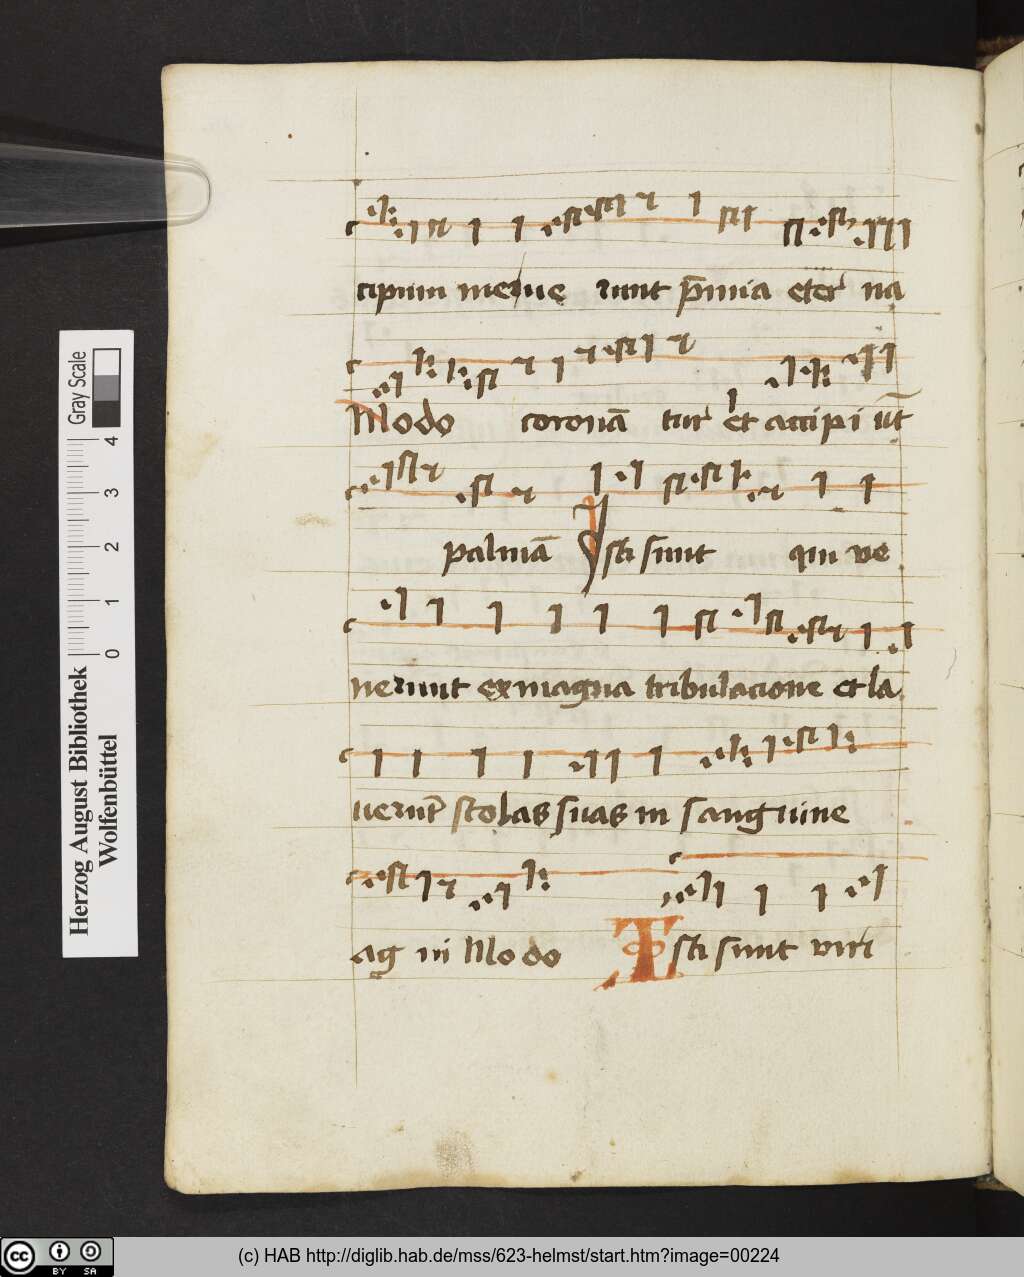 cipium meruerunt p̄mia eter na
Modo coronā tur et accipi ūt
palmā Isti sunt qui ve
nerunt ex magna tribulacione et la
verūt stolas suas in sanguine
ag ni Modo Isti sunt viri
Gray Scale
4 3 2 1 0
Herzog August Bibliothek
Wolfenbüttel
cc BY SA
(c) HAB http://diglib.hab.de/mss/623-helmst/start.htm?image=00224